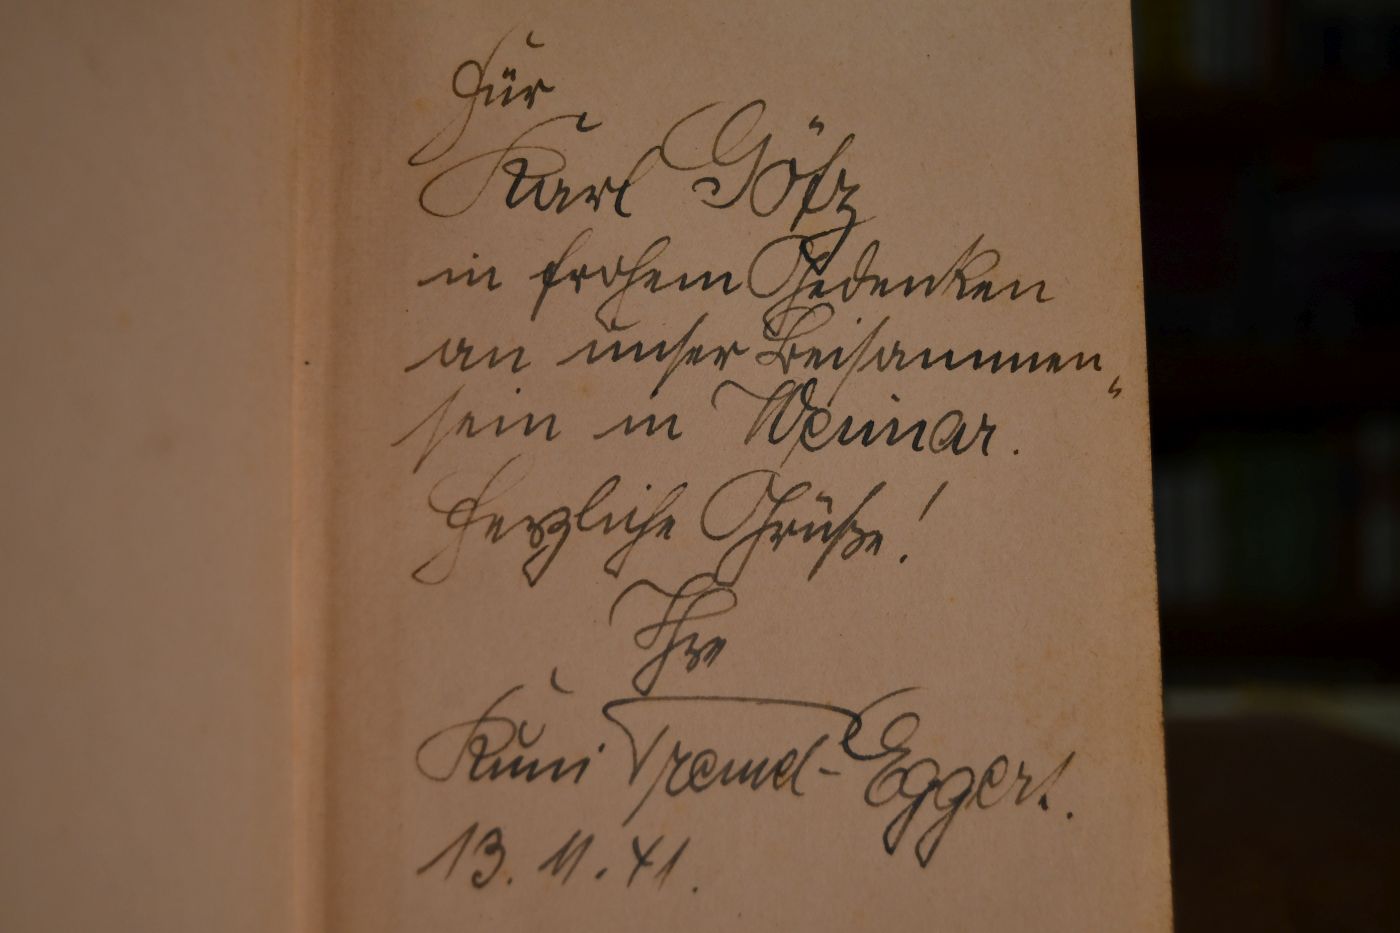 Für
Karl Götz
in frohem Gedenken
an unser Beisammen„
sein in Weimar.
Herzliche Grüße!
Ihre
Kuni Tremel-Eggert.
13. 11. 41.